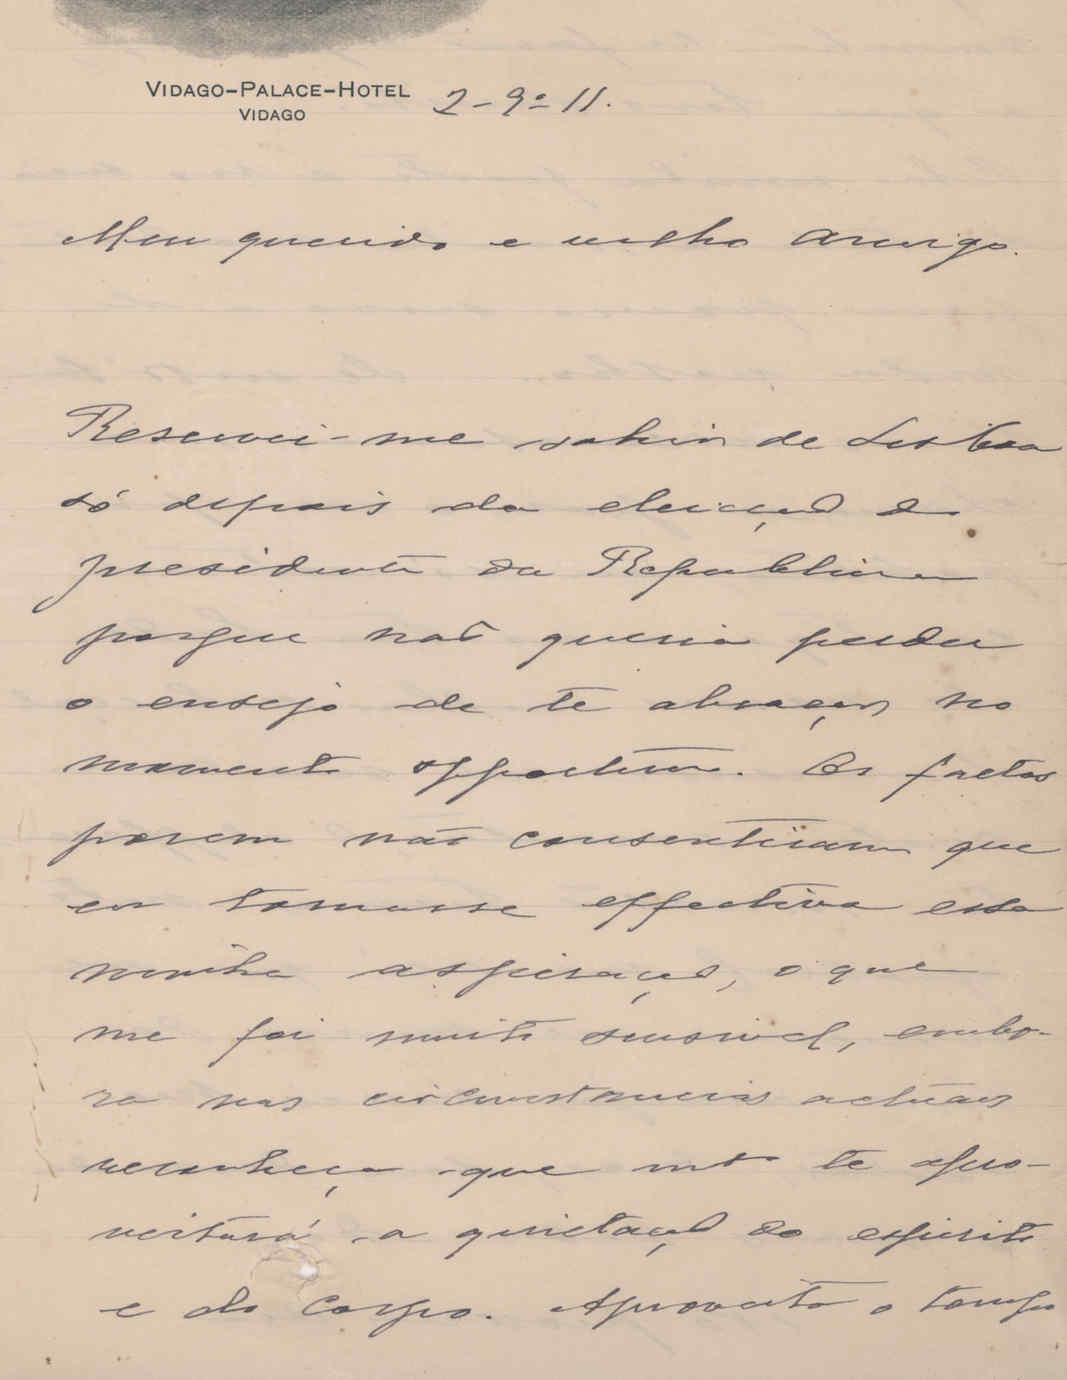 VIDAGO-PALACE-HOTEL
VIDAGO
2-9º-11.
Meu querido e velho amigo.
Reservei-me sahir de Lisboa
só depois da eleição do
presidente da Republica
porque não queria perder
o ensejo de te abraçar no
momento opportuno. Os factos
porem não consentiram que
eu tornasse effectiva essa
minha aspiração, o que
me foi muito sensivel, embo-
ra nas circumstancias actuaes
reconheça que mto te apro-
veitará a quietação do espirito
e do corpo. Aproveita o tempo